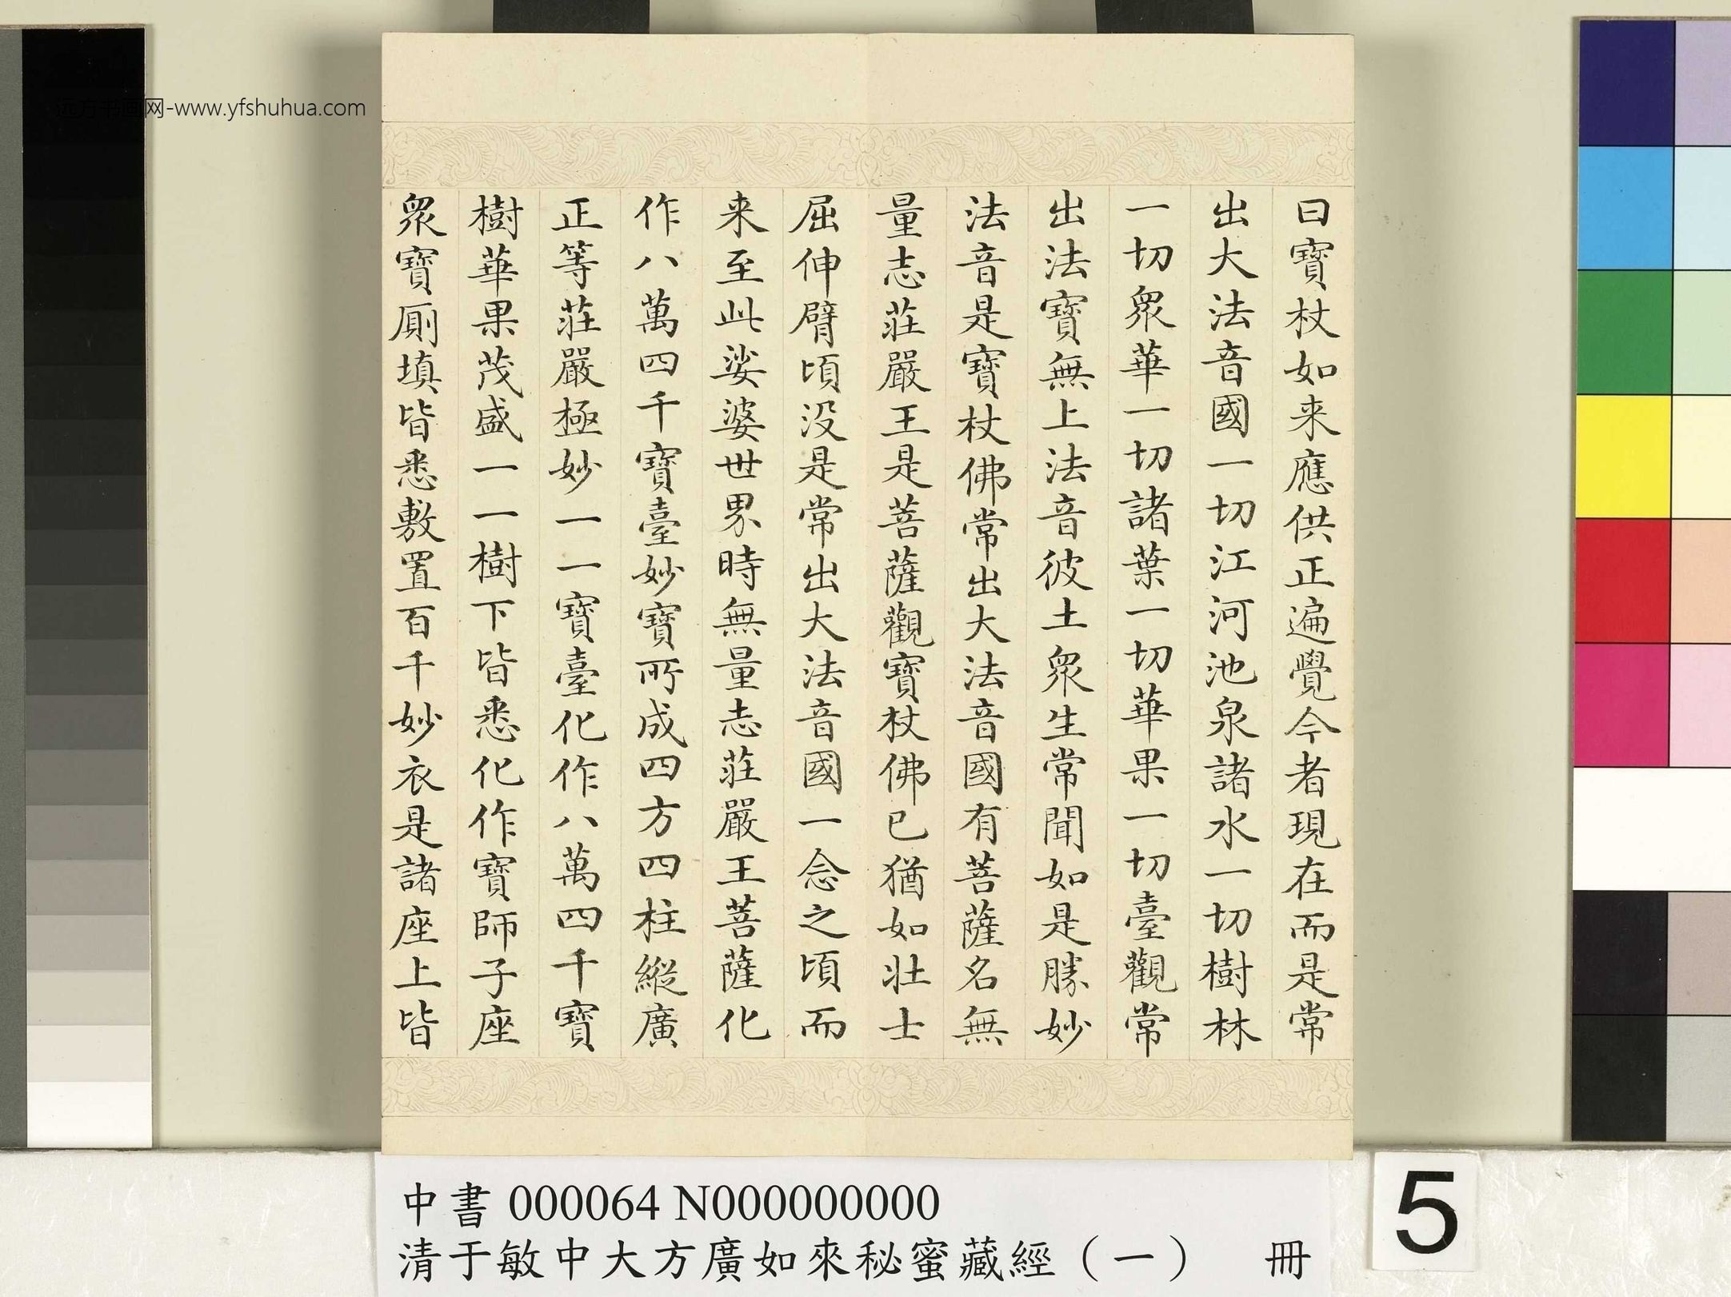 曰寶杖如来應供正遍覺今者現在而是常
出大法音國一切江河池泉諸水一切樹林
一切衆華一切諸葉一切華果一切臺觀常
出法寶無上法音彼土衆生常聞如是勝妙
法音是寶杖佛常出大法音國有菩薩名無
量志莊嚴王是菩薩觀寶杖佛已猶如壯士
屈伸臂頃没是常出大法音國一念之頃而
来至此娑婆世界時無量志莊嚴王菩薩化
作八萬四千寶臺妙寶所成四方四柱縱廣
正等莊嚴極妙一一寶臺化作八萬四千寶
樹華果茂盛一一樹下皆悉化作寶師子座
衆寶厠填皆悉敷置百千妙衣是諸座上皆
中書 000064 N000000000
清于敏中大方廣如來秘蜜藏經（一） 冊
5
网-www.yfshuhua.com